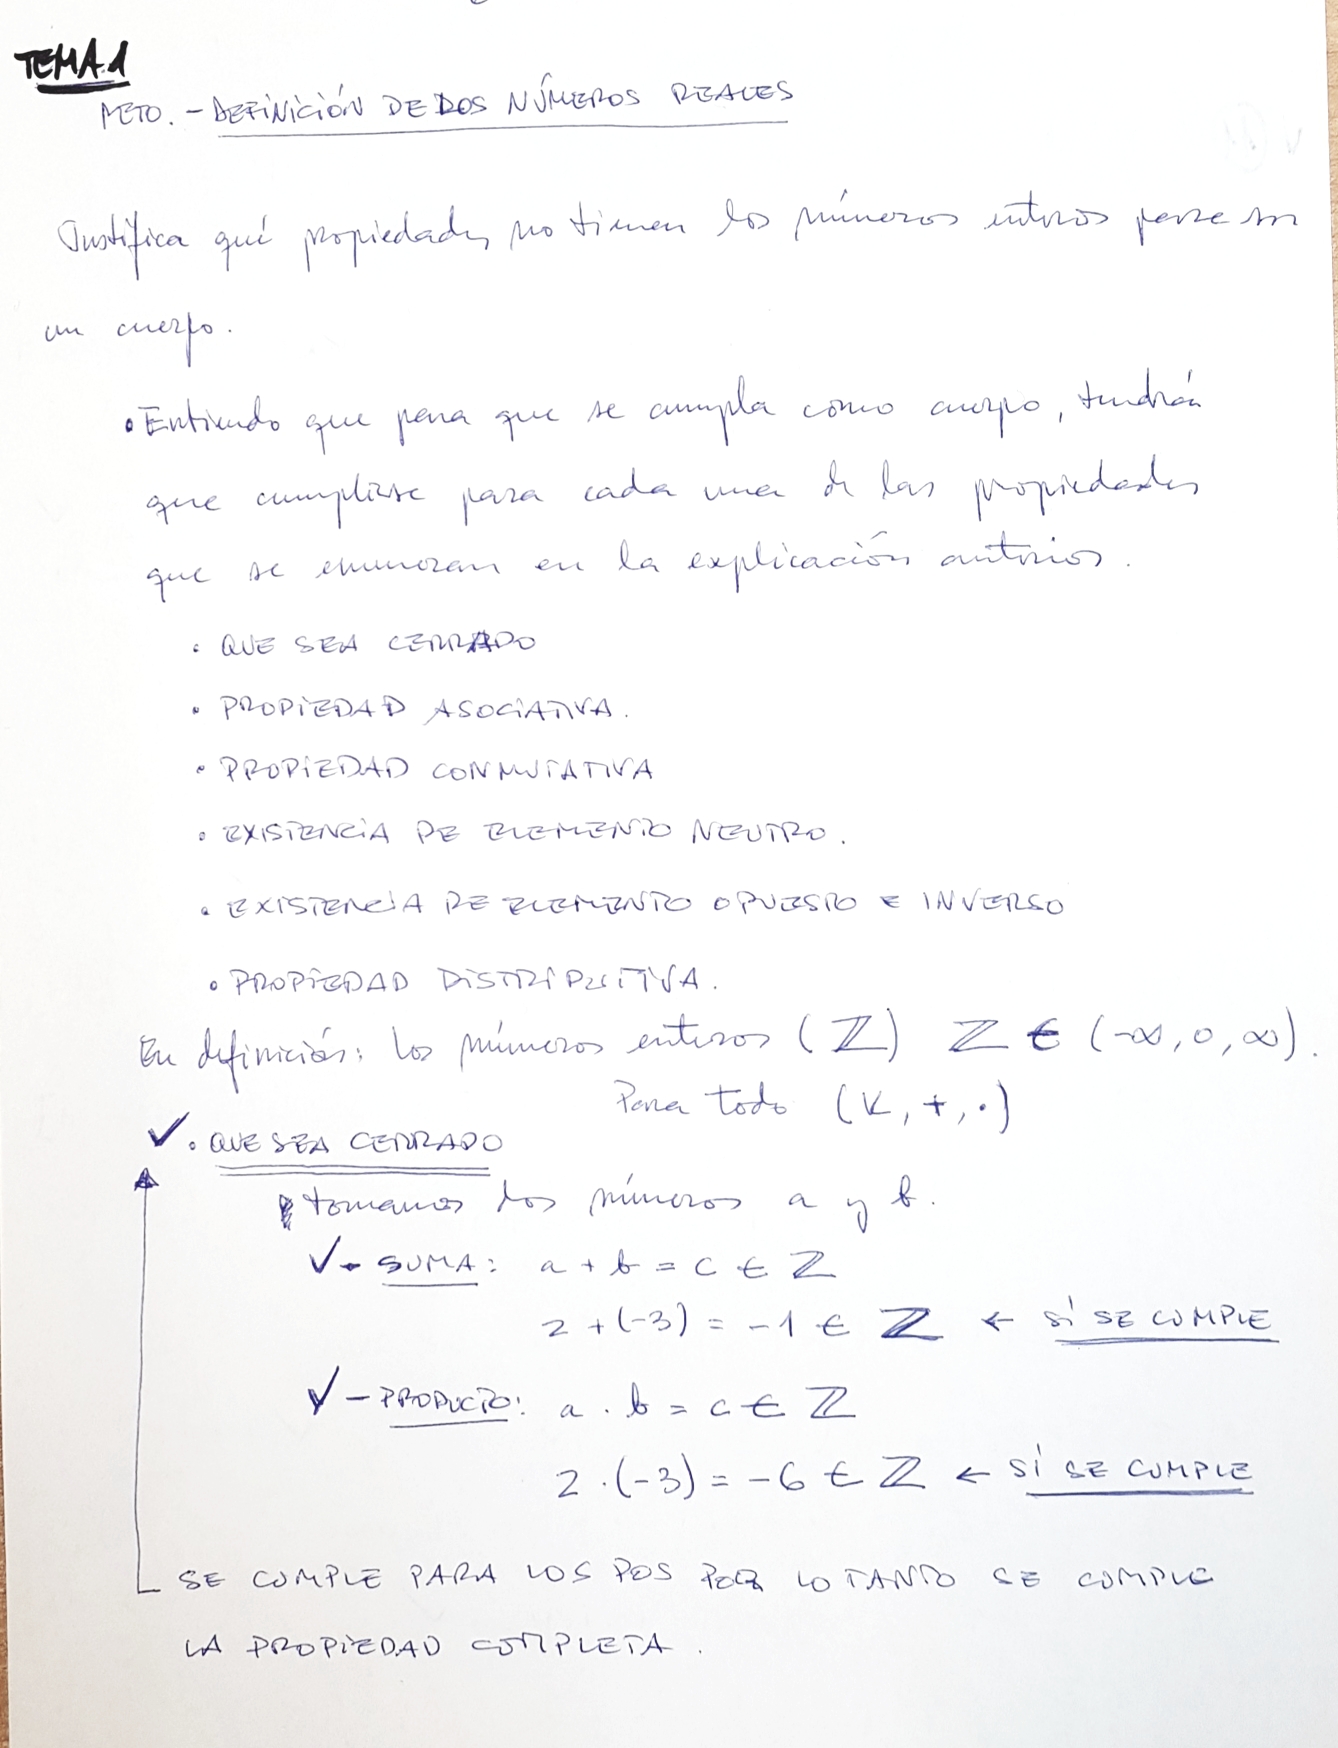 TEMA.1
RETO. - DEFINICIÓN DE LOS NÚMEROS REALES
Justifica qué propiedades no tienen los números enteros para ser
un cuerpo.
• Entiendo que para que se cumpla como cuerpo, tendrán
que cumplirse para cada una de las propiedades
que se enumeran en la explicación anterior.
• QUE SEA CERRADO
• PROPIEDAD ASOCIATIVA.
• PROPIEDAD CONMUTATIVA
• EXISTENCIA DE ELEMENTO NEUTRO.
• EXISTENCIA DE ELEMENTO OPUESTO E INVERSO
• PROPIEDAD DISTRIBUITIVA.
En definición: los números enteros (ℤ) ℤ ∈ (-∞, 0, ∞).
Para todo (K, +, ·)
✓ • QUE SEA CERRADO
tomamos dos números a y b.
✓ - SUMA: a + b = c ∈ ℤ
2 + (-3) = -1 ∈ ℤ ← SÍ SE CUMPLE
✓ - PRODUCTO: a · b = c ∈ ℤ
2 · (-3) = -6 ∈ ℤ ← SÍ SE CUMPLE
SE CUMPLE PARA LOS DOS POR LO TANTO SE CUMPLE
LA PROPIEDAD COMPLETA.